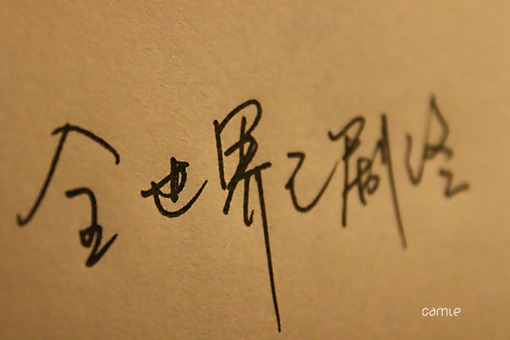 全世界已剧终
camle